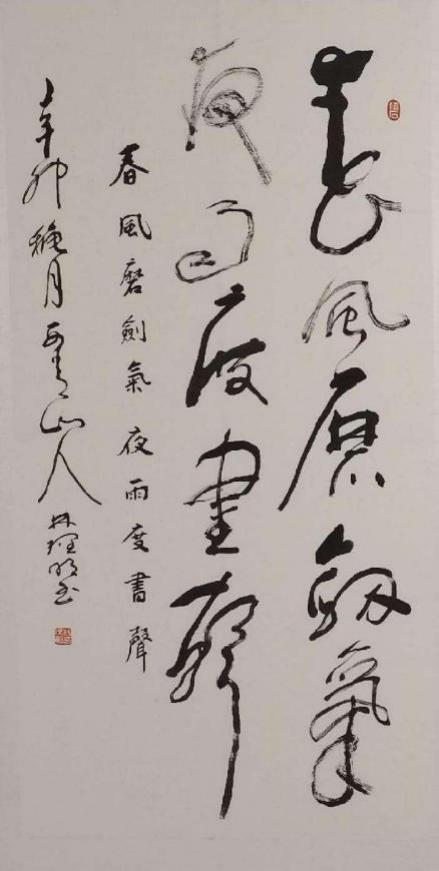 春風磨劍氣
夜雨度書聲
春風磨劍氣 夜雨度書聲
辛卯 月 山人